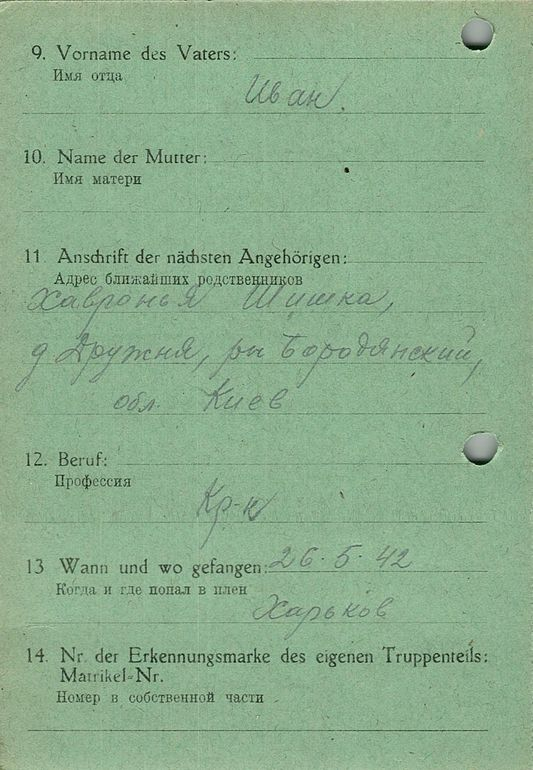 9. Vorname des Vaters:
Имя отца
Иван.
10. Name der Mutter:
Имя матери
11. Anschrift der nächsten Angehörigen:
Адрес ближайших родственников
Хавронья Шишка,
д Дружня, рн Бородянский,
обл. Киев
12. Beruf:
Профессия
Кр-н
13 Wann und wo gefangen: 26.5.42
Когда и где попал в плен
Харьков
14. Nr. der Erkennungsmarke des eigenen Truppenteils:
Matrikel-Nr.
Номер в собственной части